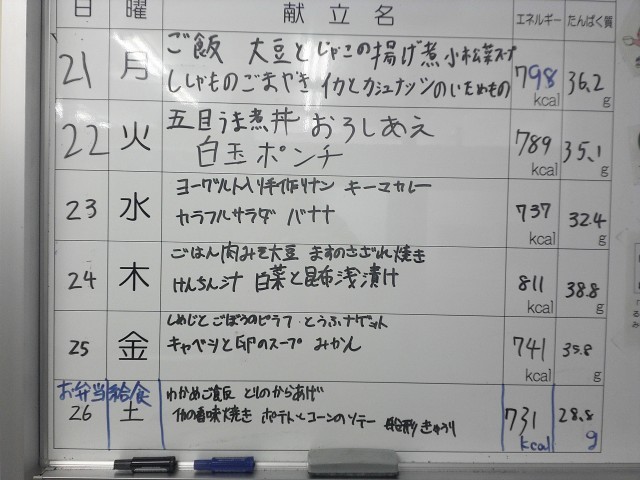 日 曜 献立名 エネルギー たんぱく質
21 月 ご飯 大豆とじゃこの揚げ煮 小松菜スープ
ししゃものごまやき イカとカシューナッツのいためもの 798 kcal 36.2 g
22 火 五目うま煮丼 おろしあえ
白玉ポンチ 789 kcal 35.1 g
23 水 ヨーグルト入り手作りナン キーマカレー
カラフルサラダ バナナ 737 kcal 32.4 g
24 木 ごはん 肉みそ大豆 ますのさざれ焼き
けんちん汁 白菜と昆布浅漬け 811 kcal 38.8 g
25 金 しめじとごぼうのピラフ とうふナゲット
キャベシとGFのスープ みかん 741 kcal 35.8 g
お弁当給食
26 土 わかめご飯 とりのからあげ
香味焼き ポテトとコーンのソテー 船形きゅうり 731 kcal 28.8 g